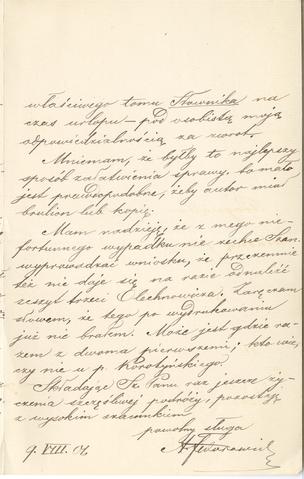 właściwego tomu Słownika na
czas urlopu – pod osobistą moją
odpowiedzialnością za zwrot.
Mniemam, że byłby to najlepszy
sposób załatwienia sprawy, bo mało
jest prawdopodobne, żeby autor miał
brulion lub kopię.
Mam nadzieję, że z mego nie-
fortunnego wypadku nie zechce Szan.
wyprowadzać wniosku, że przezemnie
też nie daje się na razie odnaleźć
zeszyt trzeci Olechnowicza. Zaręczam
słowem, że tego po wydrukowaniu
już nie brałem. Może jest gdzie ra-
zem z dwoma pierwszemi; kto wie,
czy nie u p. Korotyńskiego.
Składając Sz. Panu raz jeszcze ży-
czenia szczęśliwej podróży, pozostaję
z wysokim szacunkiem
powolny sługa
9. VIII. 04.